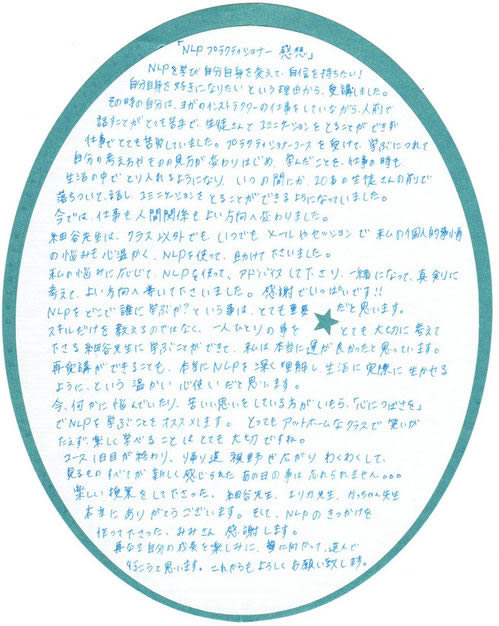 「NLP プラクティショナー 感想」
NLPを学び自分自身を変えて、自信を持ちたい！
自分自身を好きになりたいという理由から、受講しました。
その時の自分は、ヨガのインストラクターの仕事をしていながら、人前で
話すことがとても苦手で、生徒さんとコミニケーションをとることができず
仕事でとても苦労していました。プラクティショナーコースを受けて、学ぶにつれて
自分の考え方やものの見方が変わりはじめ、学んだことを、仕事の時も
生活の中でとり入れるようになり、いつの間にか、20名の生徒さんの前で
落ちついて、話し、コミニケーションをとることができるようになっていました。
今では、仕事も人間関係もよい方向へ変わりました。
細谷先生は、クラス以外でも いつでも メールやセッションで 私の個人的事情
の悩みも心温かく、NLPを使って、助けて下さいました。
私の悩みに応じて、NLPを使って、アドバイスして下さり、一緒になって、真剣に
考えて、よい方向へ導いて下さいました。感謝でいっぱいです!!
NLPをどこで誰に学ぶか？という事は、とても重要だと思います。
スキルだけを教えるのではなく、一人ひとりの事をとても大切に考えて
下さる細谷先生に学ぶことができて、私は本当に運が良かったと思っています。
再受講ができることも、本当にNLPを深く理解し生活に実際に生かせる
ように、という温かい心使いだと思います。
今、何かに悩んでいたり、苦しい思いをしている方がいたら、「心につばさを」
でNLPを学ぶことをオススメします。とってもアットホームなクラスで笑いが
たえず、楽しく学べることはとても大切ですね。
コース1日目が終わり、帰り道 視野が広がり わくわくして、
見るものすべてが新しく感じられたあの日の事は忘れられません。。。
楽しい授業をして下さった、細谷先生、まりか先生、かっちゃん先生
本当にありがとうございます。そして、NLPのきっかけを
作って下さった、みみさん 感謝します。
更なる自分の成長を楽しみに、夢に向かって、進んで
行こうと思います。これからもよろしくお願い致します。